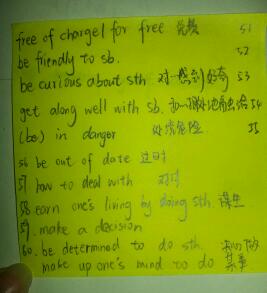 free of charge/ for free 免费 51
be friendly to sb. 52
be curious about sth 对…感到好奇 53
get along well with sb. 54
(be) in danger 处境危险 55
56 be out of date 过时
57 how to deal with 对付
58 earn one's living by doing sth. 谋生
59. make a decision
60. be determined to do sth. 决心做
make up one's mind to do 某事